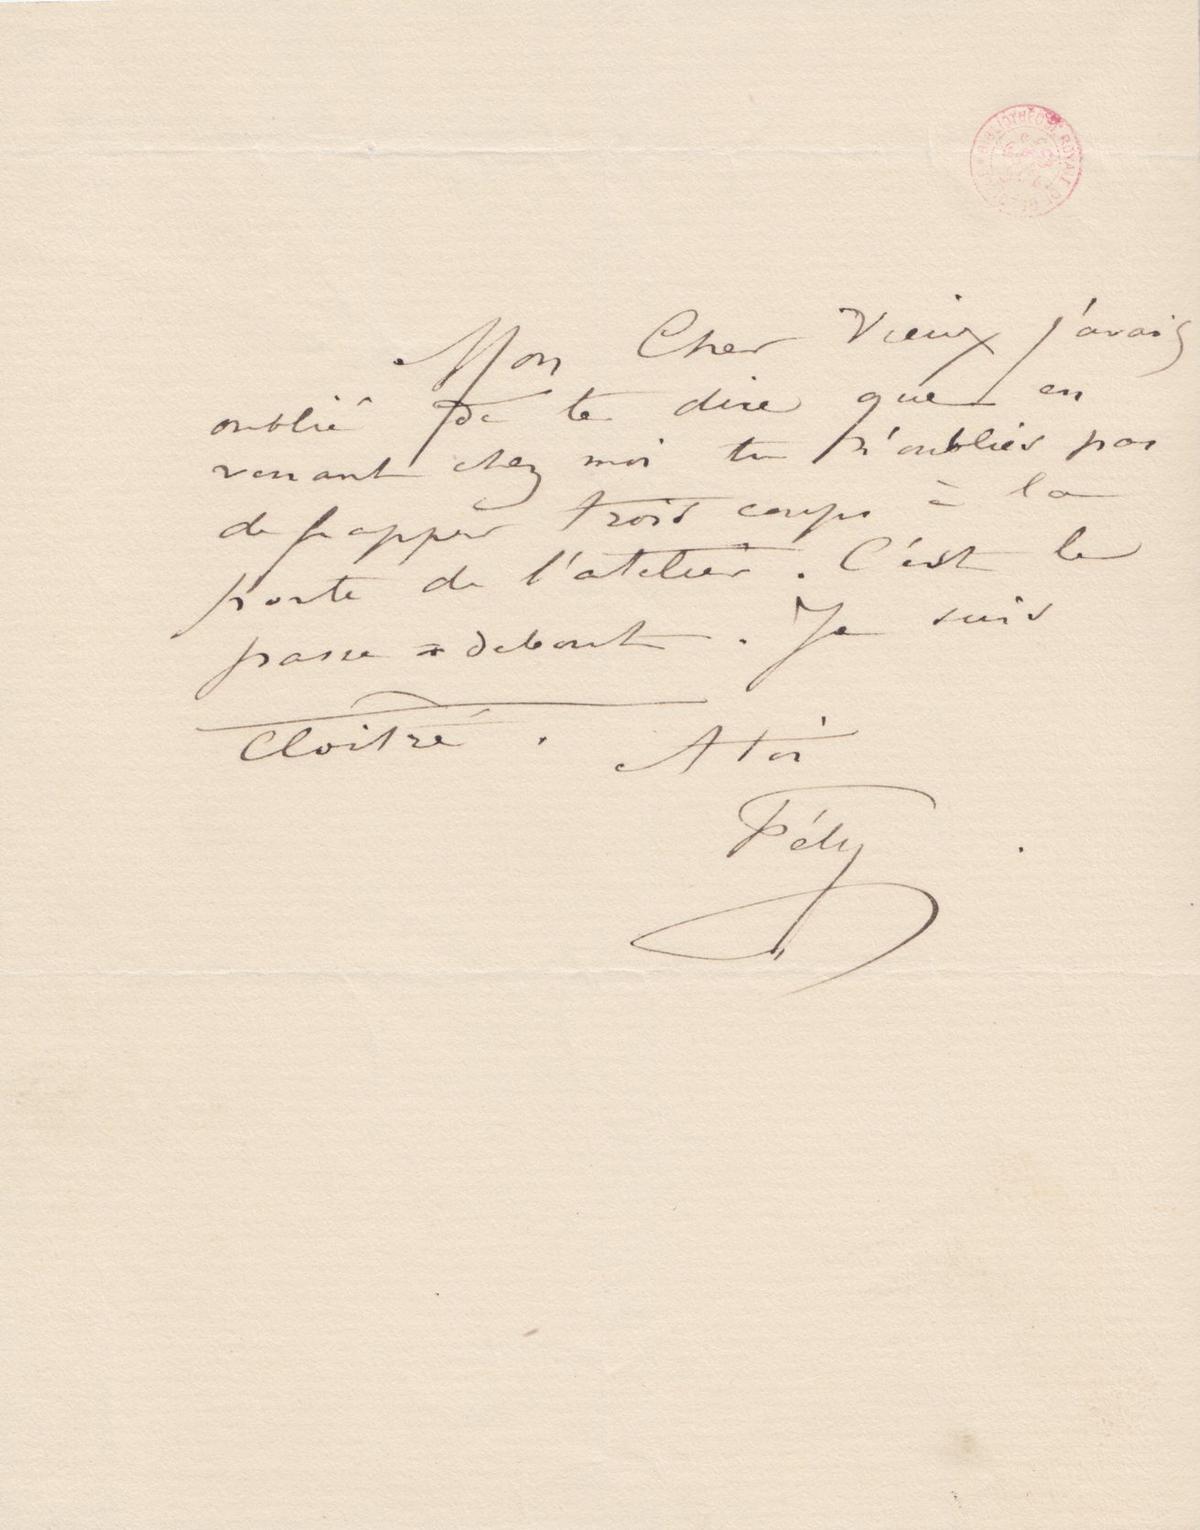 BIBLIOTHÈQUE ROYALE DE
Mon Cher Vieux j'avais
oublié de te dire que en
venant chez moi tu n'oublies pas
de frapper trois coups à la
porte de l'atelier. C'est le
passe = debout. Je suis
Cloitré. A toi
Fély